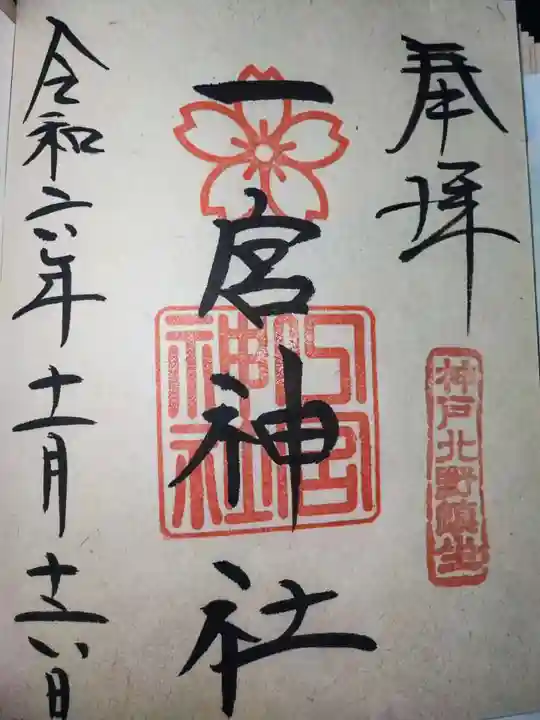 奉拝
神戸北野鎮坐
一宮神社
一宮神社
令和六年十一月十六日